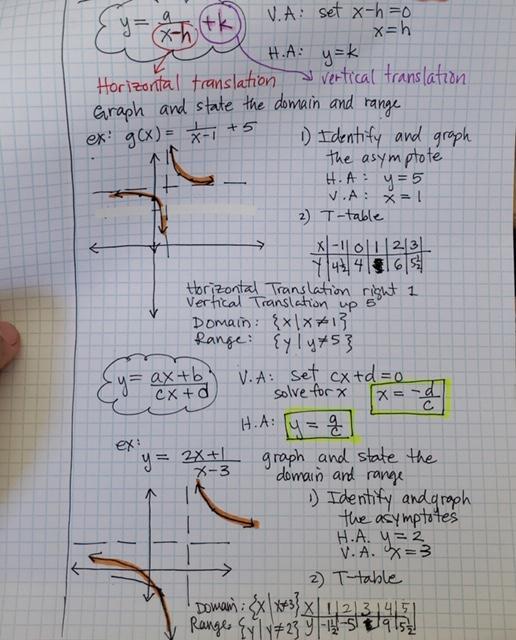 y = a/(x-h) + k
V.A: set x-h=0
x=h
H.A: y=k
Horizontal translation
vertical translation
Graph and state the domain and range
ex: g(x) = 1/(x-1) + 5
1) Identify and graph
the asymptote
H.A: y=5
V.A: x=1
2) T-table
X | -1 | 0 | 1 | 2 | 3
Y | 4½ | 4 | | 6 | 5½
Horizontal Translation right 1
Vertical Translation up 5
Domain: {x | x≠1}
Range: {y | y≠5}
y = (ax+b)/(cx+d)
V.A: Set cx+d=0
solve for x
x = -d/c
H.A: y = a/c
ex:
y = (2x+1)/(x-3)
graph and state the
domain and range
1) Identify and graph
the asymptotes
H.A. y=2
V.A. x=3
2) T-table
Domain: {x | x≠3}
Range {y | y≠2}
X | 1 | 2 | 3 | 4 | 5
Y | -1½ | -5 | | 9 | 5½